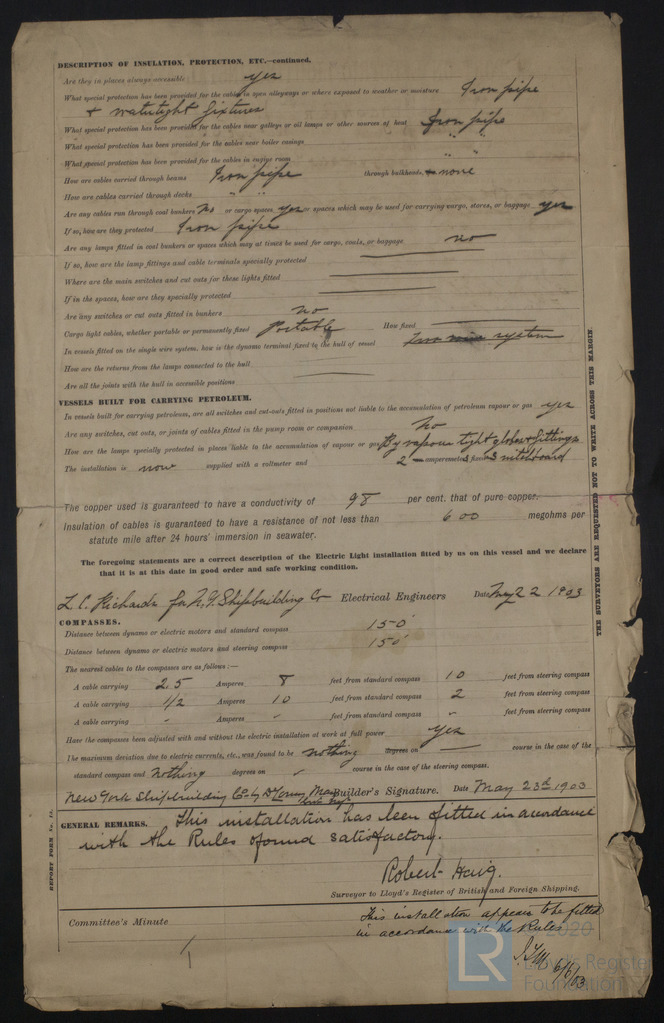 DESCRIPTION OF INSULATION, PROTECTION, ETC.—continued.
Are they in places always accessible yes
What special protection has been provided for the cables in open alleyways or where exposed to weather or moisture Iron pipe
+ watertight fixtures
What special protection has been provided for the cables near galleys or oil lamps or other sources of heat Iron pipe
What special protection has been provided for the cables near boiler casings " "
What special protection has been provided for the cables in engine room " "
How are cables carried through beams Iron pipe through bulkheads, + none
How are cables carried through decks " "
Are any cables run through coal bunkers No or cargo spaces yes or spaces which may be used for carrying cargo, stores, or baggage yes
If so, how are they protected Iron pipe
Are any lamps fitted in coal bunkers or spaces which may at times be used for cargo, coals, or baggage no
If so, how are the lamp fittings and cable terminals specially protected
Where are the main switches and cut outs for these lights fitted
If in the spaces, how are they specially protected
Are any switches or cut outs fitted in bunkers no
Cargo light cables, whether portable or permanently fixed Portable How fixed
In vessels fitted on the single wire system, how is the dynamo terminal fixed to the hull of vessel Two wire system
How are the returns from the lamps connected to the hull
Are all the joints with the hull in accessible positions
VESSELS BUILT FOR CARRYING PETROLEUM.
In vessels built for carrying petroleum, are all switches and cut-outs fitted in positions not liable to the accumulation of petroleum vapour or gas yes
Are any switches, cut outs, or joints of cables fitted in the pump room or companion No
How are the lamps specially protected in places liable to the accumulation of vapour or gas By vapour tight globes + fittings
The installation is now supplied with a voltmeter and 2 — amperemeters fixed switchboard
The copper used is guaranteed to have a conductivity of 98 per cent. that of pure copper.
Insulation of cables is guaranteed to have a resistance of not less than 600 megohms per
statute mile after 24 hours' immersion in seawater.
The foregoing statements are a correct description of the Electric Light installation fitted by us on this vessel and we declare
that it is at this date in good order and safe working condition.
L. C. Richards for N.Y. Shipbuilding Co Electrical Engineers Date May 22 1903
COMPASSES.
Distance between dynamo or electric motors and standard compass 150'
Distance between dynamo or electric motors and steering compass 150'
The nearest cables to the compasses are as follows:—
A cable carrying 25 Amperes 8 feet from standard compass 10 feet from steering compass
A cable carrying 1/2 Amperes 10 feet from standard compass 2 feet from steering compass
A cable carrying - Amperes - feet from standard compass - feet from steering compass
Have the compasses been adjusted with and without the electric installation at work at full power yes
The maximum deviation due to electric currents, etc., was found to be nothing degrees on — course in the case of the
standard compass and nothing degrees on - course in the case of the steering compass.
New York Shipbuilding Co by Builder's Signature. Date May 23rd 1903
GENERAL REMARKS. This installation has been fitted in accordance
with the Rules & found satisfactory.
Robert Haig.
Surveyor to Lloyd's Register of British and Foreign Shipping.
Committee's Minute
This installation appears to be fitted
in accordance with the Rules
6/6/03
THE SURVEYORS ARE REQUESTED NOT TO WRITE ACROSS THIS MARGIN
REPORT FORM No. 13.
LR
2020
Lloyd's Register
Foundation